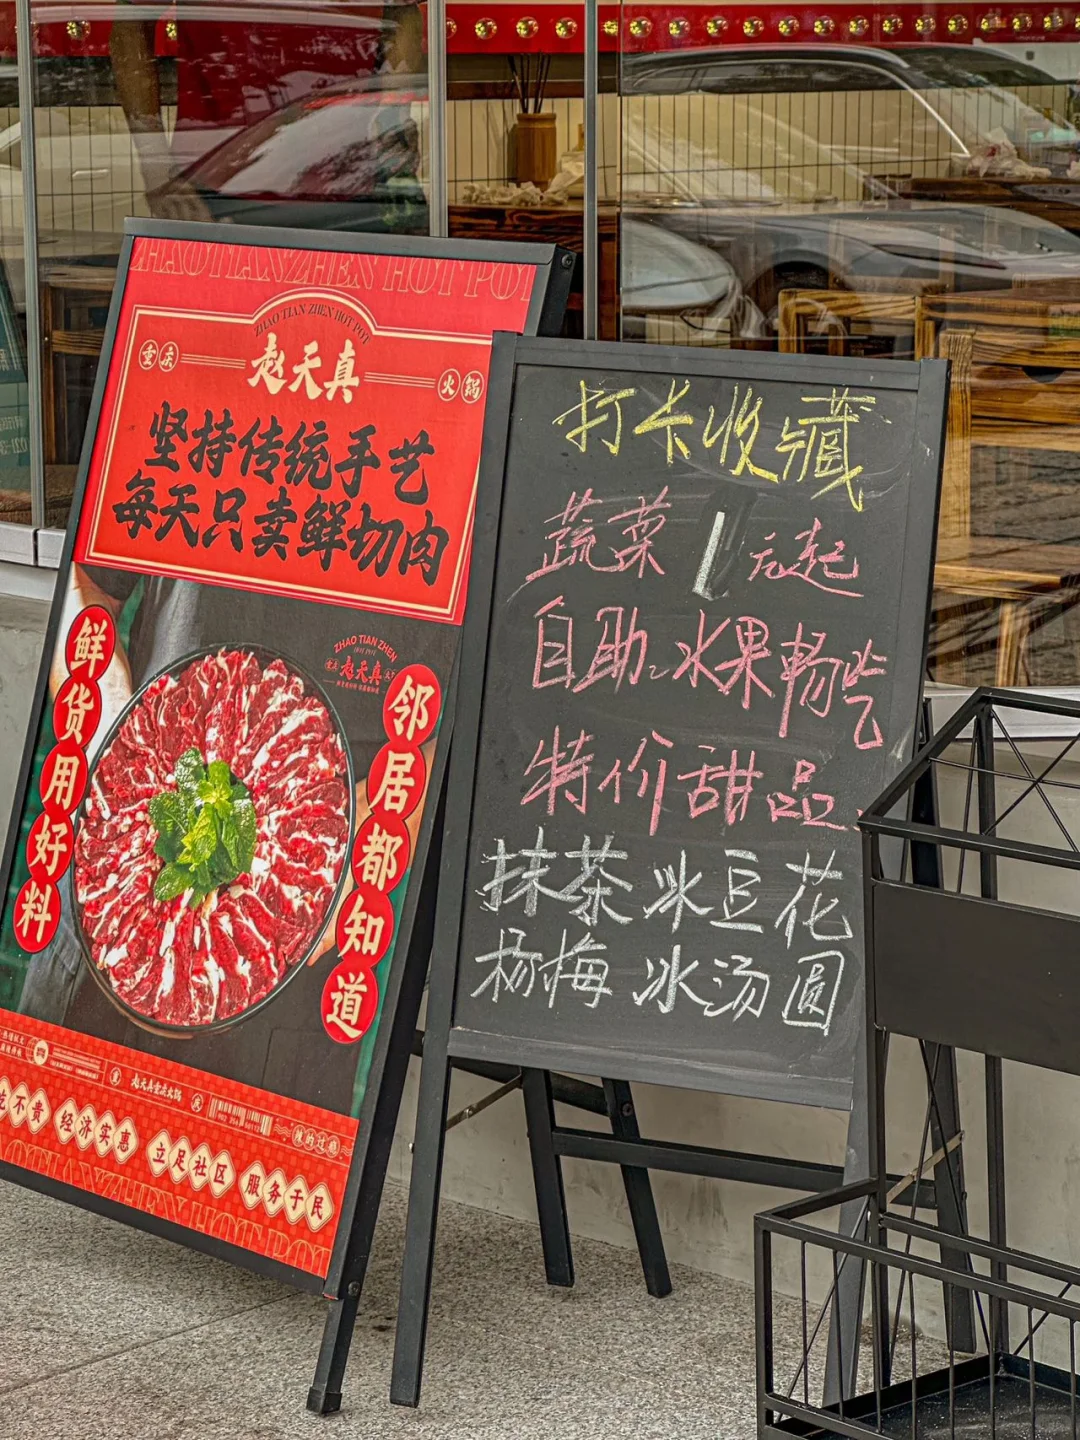 ZHAO TIANZHEN HOT POT
ZHAO TIAN ZHEN HOT POT
重庆 赵天真 火锅
坚持传统手艺
每天只卖鲜切肉
鲜货用好料
ZHAO TIAN ZHEN
HOT POT
赵天真
邻居都知道
赵天真重庆火锅
重
庆
不贵 经济实惠 立足社区 服务于民
打卡收藏
蔬菜1元起
自助水果畅吃
特价甜品
抹茶冰豆花
杨梅冰汤圆